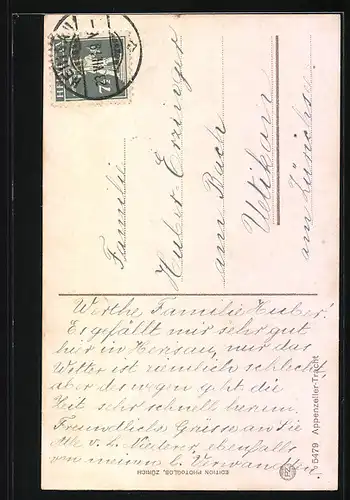 Familie
Huber-Erzinger
am Bach
Uetikon
am Zürichsee
Werthe Familie Huber!
Es gefällt mir sehr gut
hier in Herisau, nur das
Wetter ist ziemlich schlecht,
aber deswegen geht die
Zeit sehr schnell herum.
Freundliche Grüsse an Sie
Alle v. L. ebenfalls
von meinen l. Verwandten.
EDITION PHOTOGLOB, ZÜRICH
5479 Appenzeller-Tracht
HELVETIA
7½